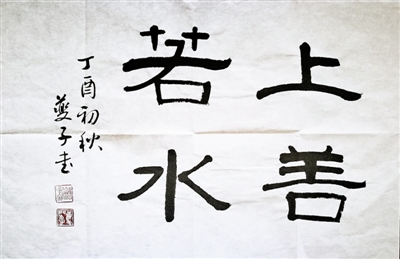 上善
若水
丁酉初秋
夔子书